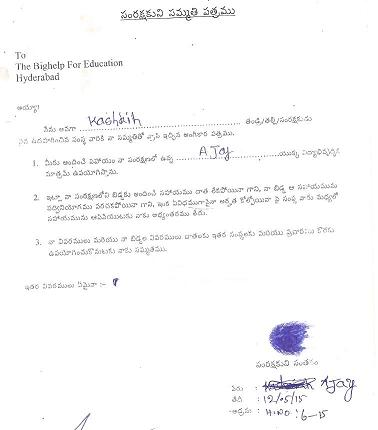 సంరక్షకుని సమ్మతి పత్రము
To
The Bighelp For Education
Hyderabad
అయ్యా!
నేను అనగా Kashaih తండ్రి/తల్లి/సంరక్షకుడను
పైన ఉదహరించిన సంస్థ వారికి నా సమ్మతితో వ్రాసి ఇచ్చిన అంగీకార పత్రము.
1. మీరు అందించే సహాయం నా సంరక్షణలో ఉన్న AJay యొక్క విద్యాభివృద్ధికి
మాత్రమే ఉపయోగిస్తాను.
2. ఇట్లా నా సంరక్షణలోని బిడ్డకు అందించే సహాయము దాత లేకపోయినా గాని, నా బిడ్డ ఆ సహాయమును
సద్వినియోగము పరచకపోయినా గాని, ఇంక ఏవిధముగానైనా అర్హత కోల్పోయినా పై సంస్థ వారు మధ్యలో
సహాయమును ఆపివేయుటకు నాకు అభ్యంతరము లేదు.
3. నా వివరములు మరియు నా బిడ్డల వివరములు దాతలకు ఇతర సంస్థలకు మరియు ప్రచారము కొరకు
ఉపయోగించుకొనుటకు నాకు సమ్మతము.
ఇతర వివరములు ఏమైనా :-
సంరక్షకుని సంతకం
పేరు : AJay
తేది : 12/05/15
అడ్రసు : H.NO: 6-15